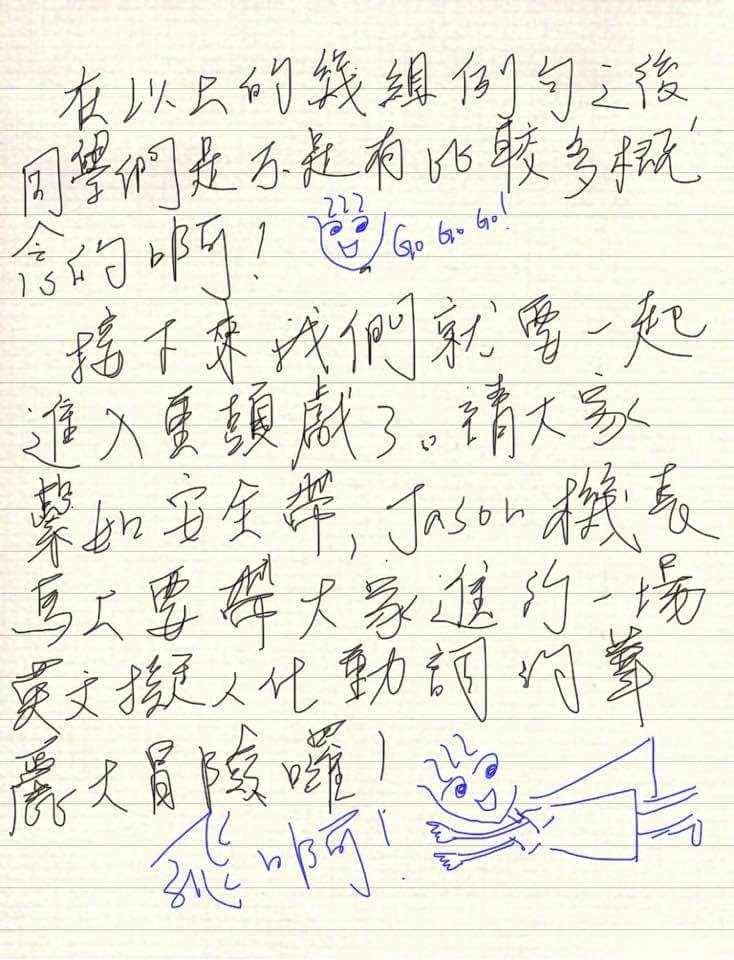 在以上的幾組例句之後
同學們是不是有比較多概
念的啊! Go Go Go!
接下來我們就要一起
進入重頭戲了。請大家
繫好安全帶, Jason 機長
馬上要帶大家進行一場
英文擬人化動詞的華
麗大冒險囉!
飛啊!